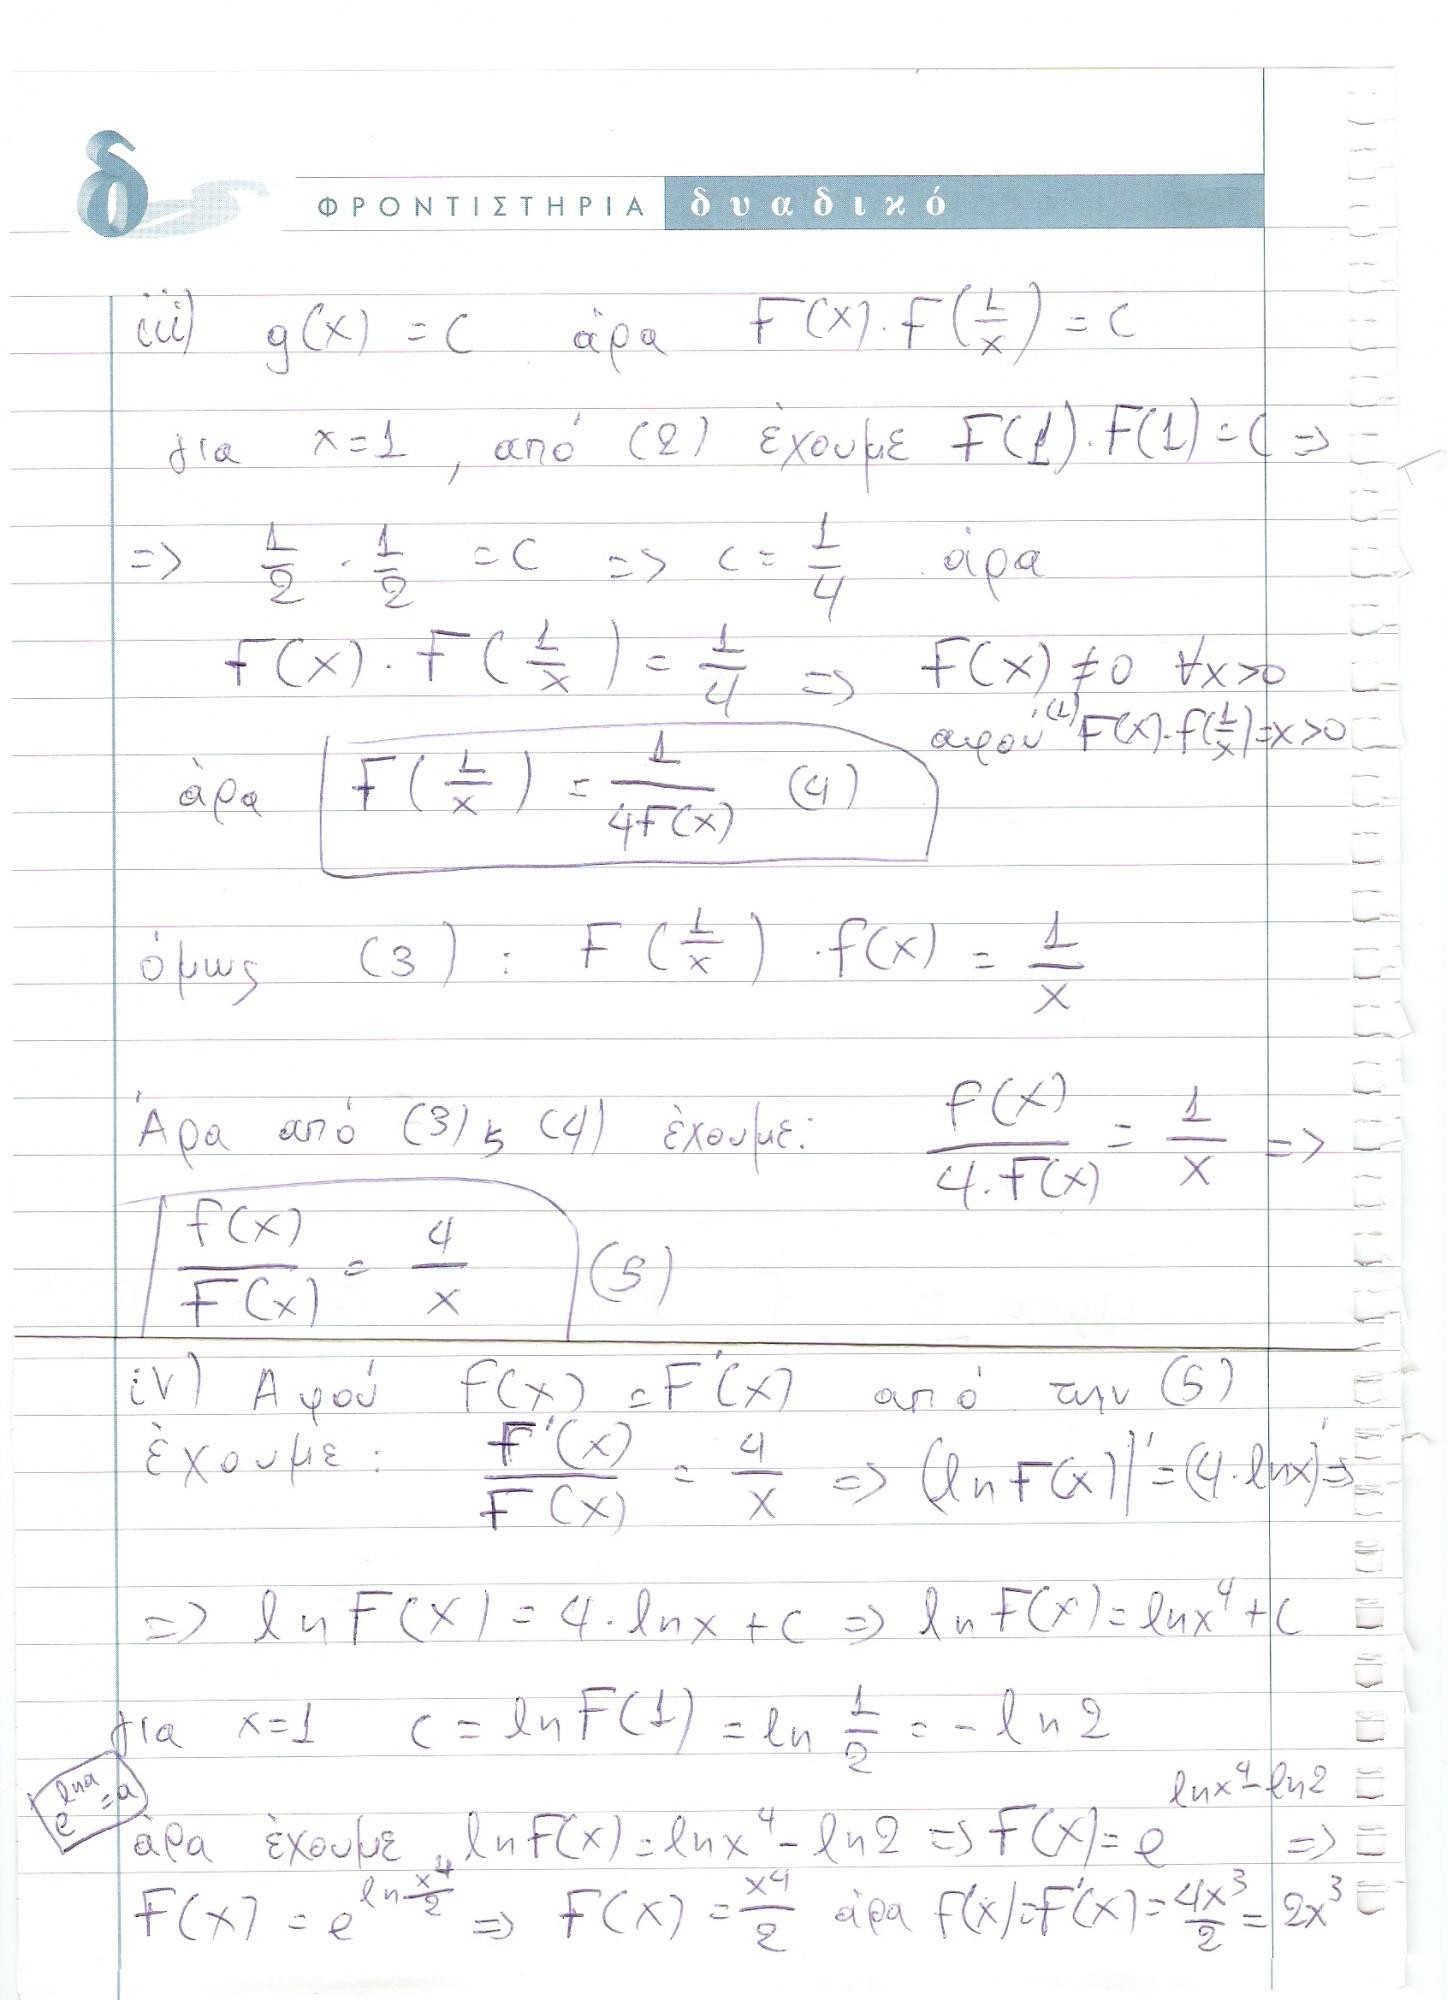 δ ΦΡΟΝΤΙΣΤΗΡΙΑ δυαδικό
iii) g(x) = c άρα F(x)·F(1/x) = c
για x=1, από (2) έχουμε F(1)·F(1) = c =>
=> 1/2 · 1/2 = c => c = 1/4 άρα
F(x)·F(1/x) = 1/4 => F(x) ≠ 0 ∀x>0
αφού (1) F(x)·f(1/x)=x>0
άρα F(1/x) = 1/(4F(x)) (4)
όμως (3) : F(1/x)·f(x) = 1/x
Άρα από (3) ϗ (4) έχουμε: f(x)/(4·F(x)) = 1/x =>
f(x)/F(x) = 4/x (5)
iv) Αφού f(x) = F'(x) από την (5)
έχουμε: F'(x)/F(x) = 4/x => (ln F(x))' = (4·lnx)' =>
=> ln F(x) = 4·lnx + c => ln F(x) = lnx^4 + c
για x=1 c = ln F(1) = ln 1/2 = - ln 2
e^lna = a
άρα έχουμε ln F(x) = lnx^4 - ln2 => F(x) = e^(lnx^4 - ln2) =>
F(x) = e^(ln x^4/2) => F(x) = x^4/2 άρα f(x) = F'(x) = 4x^3/2 = 2x^3